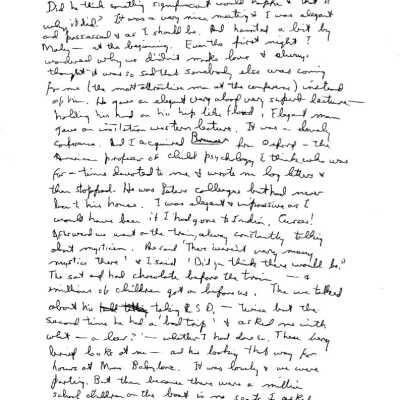 Did he think something significant would happen & that is
why it did? It was a very nice meeting & I was elegant
and possessed & as I should be. And haunted a bit by
at the beginning. Even the first night I
wondered why we didn't make love & always
thought it was so sad that somebody else was coming
for me (the most attractive man at the conference) instead
of him. He gave an elegant very aloof very superb lecture —
holding his hand on his hip like Freud! Elegant man
gave an lecture. It was a lovely
conference. And I acquired for Oxford — the
American professor of child psychology I think who was
for a time devoted to me & wrote me long letters &
then stopped. He was Peter's colleague but had never
been to his house. I was elegant & impressive as I
would have been if I had gone to India. Curses!
Afterward we went on the train, always constantly talking
about mysticism. He said 'There weren't very many
mystics there' & I said 'Did you think there would be?'
Then sat and had chocolate before the train — &
millions of children got on before us. Then we talked
about his taking LSD — twice but the
second time he had a 'bad trip' & asked me with
what — a leer? — whether I had done so. These very
looks at me — and he looking that way for
hours at Miss Babylon. It was lovely & we were
parting. But then because there were a million
school children on the boat is no seats I asked